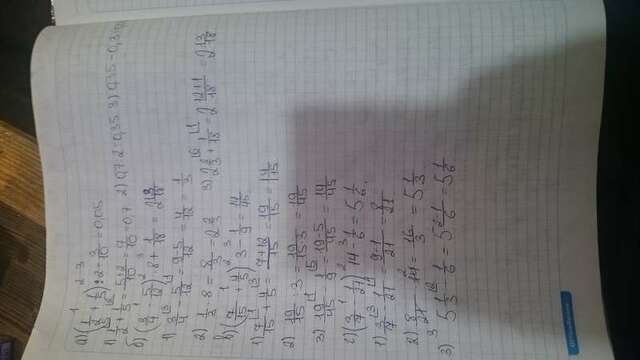 а) (1/2 + 1/5) : 2 - 3/10 = 0,05
1) 1/2 + 1/5 = 5+2/10 = 7/10 = 0,7 2) 0,7 : 2 = 0,35 3) 0,35 - 0,3
б) (3/4 - 5/12) · 8 + 1/18 = 2 13/18
1) 3/4 - 5/12 = 9-5/12 = 4/12 = 1/3
2) 1/3 · 8 = 8/3 = 2 2/3 3) 2 2/3 + 1/18 = 2 12+1/18 = 2 13/18
в) (7/15 + 4/5) : 3 - 1/9 = 14/45
1) 7/15 + 4/5 = 7+12/15 = 19/15 = 1 4/15
2) 19/15 : 3 = 19/15·3 = 19/45
3) 19/45 - 1/9 = 19-5/45 = 14/45
г) (3/7 - 1/21) · 14 - 1/6 = 5 1/6
1) 3/7 - 1/21 = 9-1/21 = 8/21
2) 8/21 · 14 = 16/3 = 5 1/3
3) 5 1/3 - 1/6 = 5 2-1/6 = 5 1/6